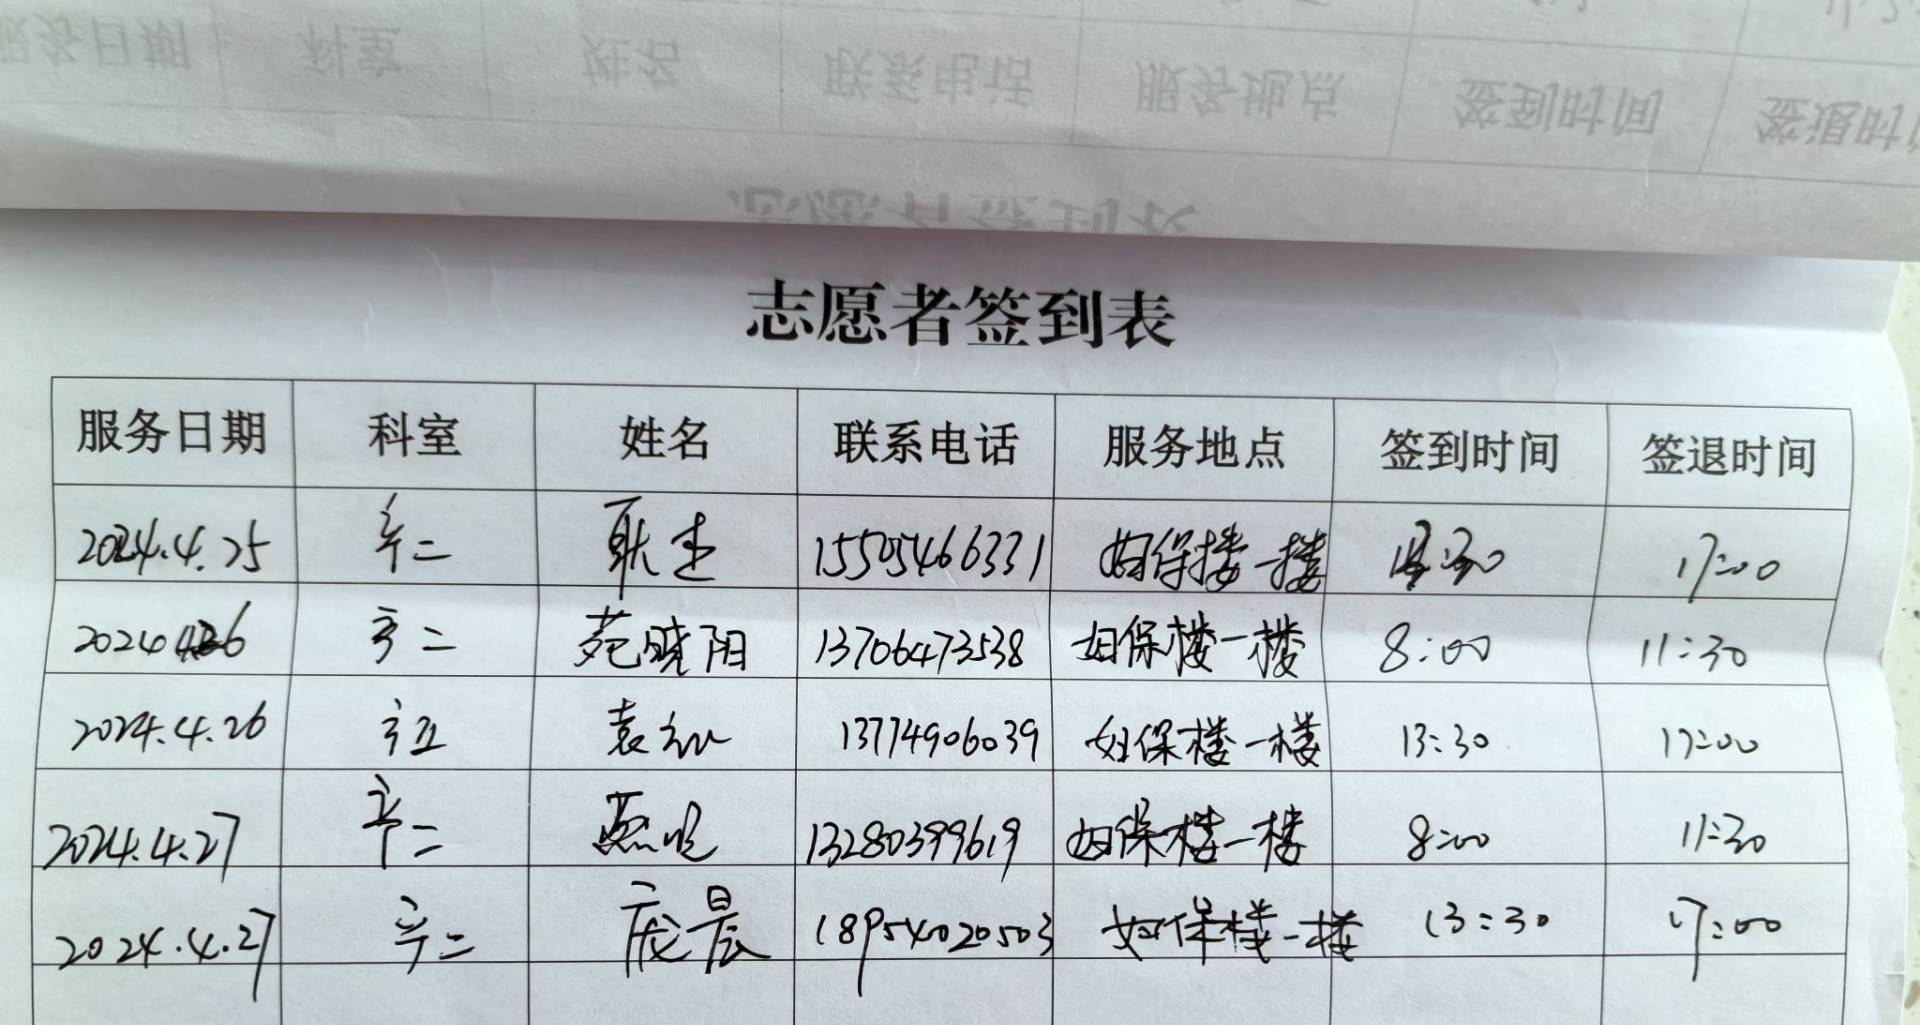 服务日期 科室 姓名 联系电话 服务地点 签到时间 签退时间
志愿者签到表
志愿者签到表
服务日期 科室 姓名 联系电话 服务地点 签到时间 签退时间
2024.4.25 二 耿 15505466331 妇保楼一楼 17:00
2024 26 二 苑晓阳 13706473538 妇保楼一楼 8:00 11:30
2024.4.26 袁 13774906039 妇保楼一楼 13:30 17:00
2024.4.27 二 燕 13280399619 妇保楼一楼 8:00 11:30
2024.4.27 二 庞晨 18954020503 妇保楼一楼 13:30 17:00